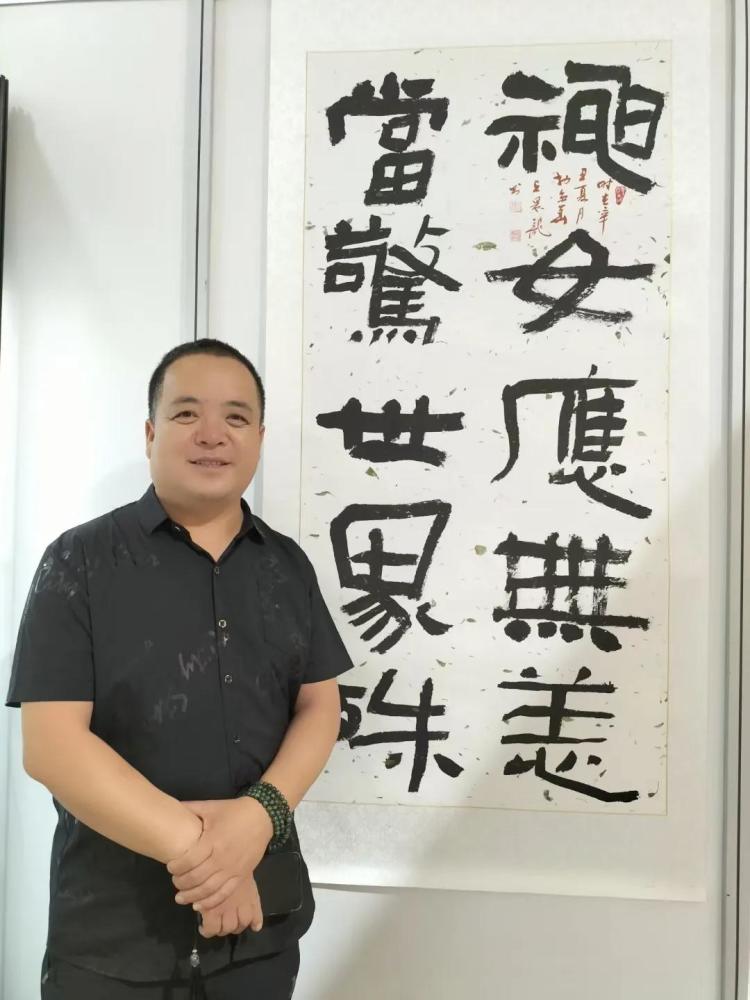 神女應無恙
當驚世界殊
时在辛
丑夏月
龍
书